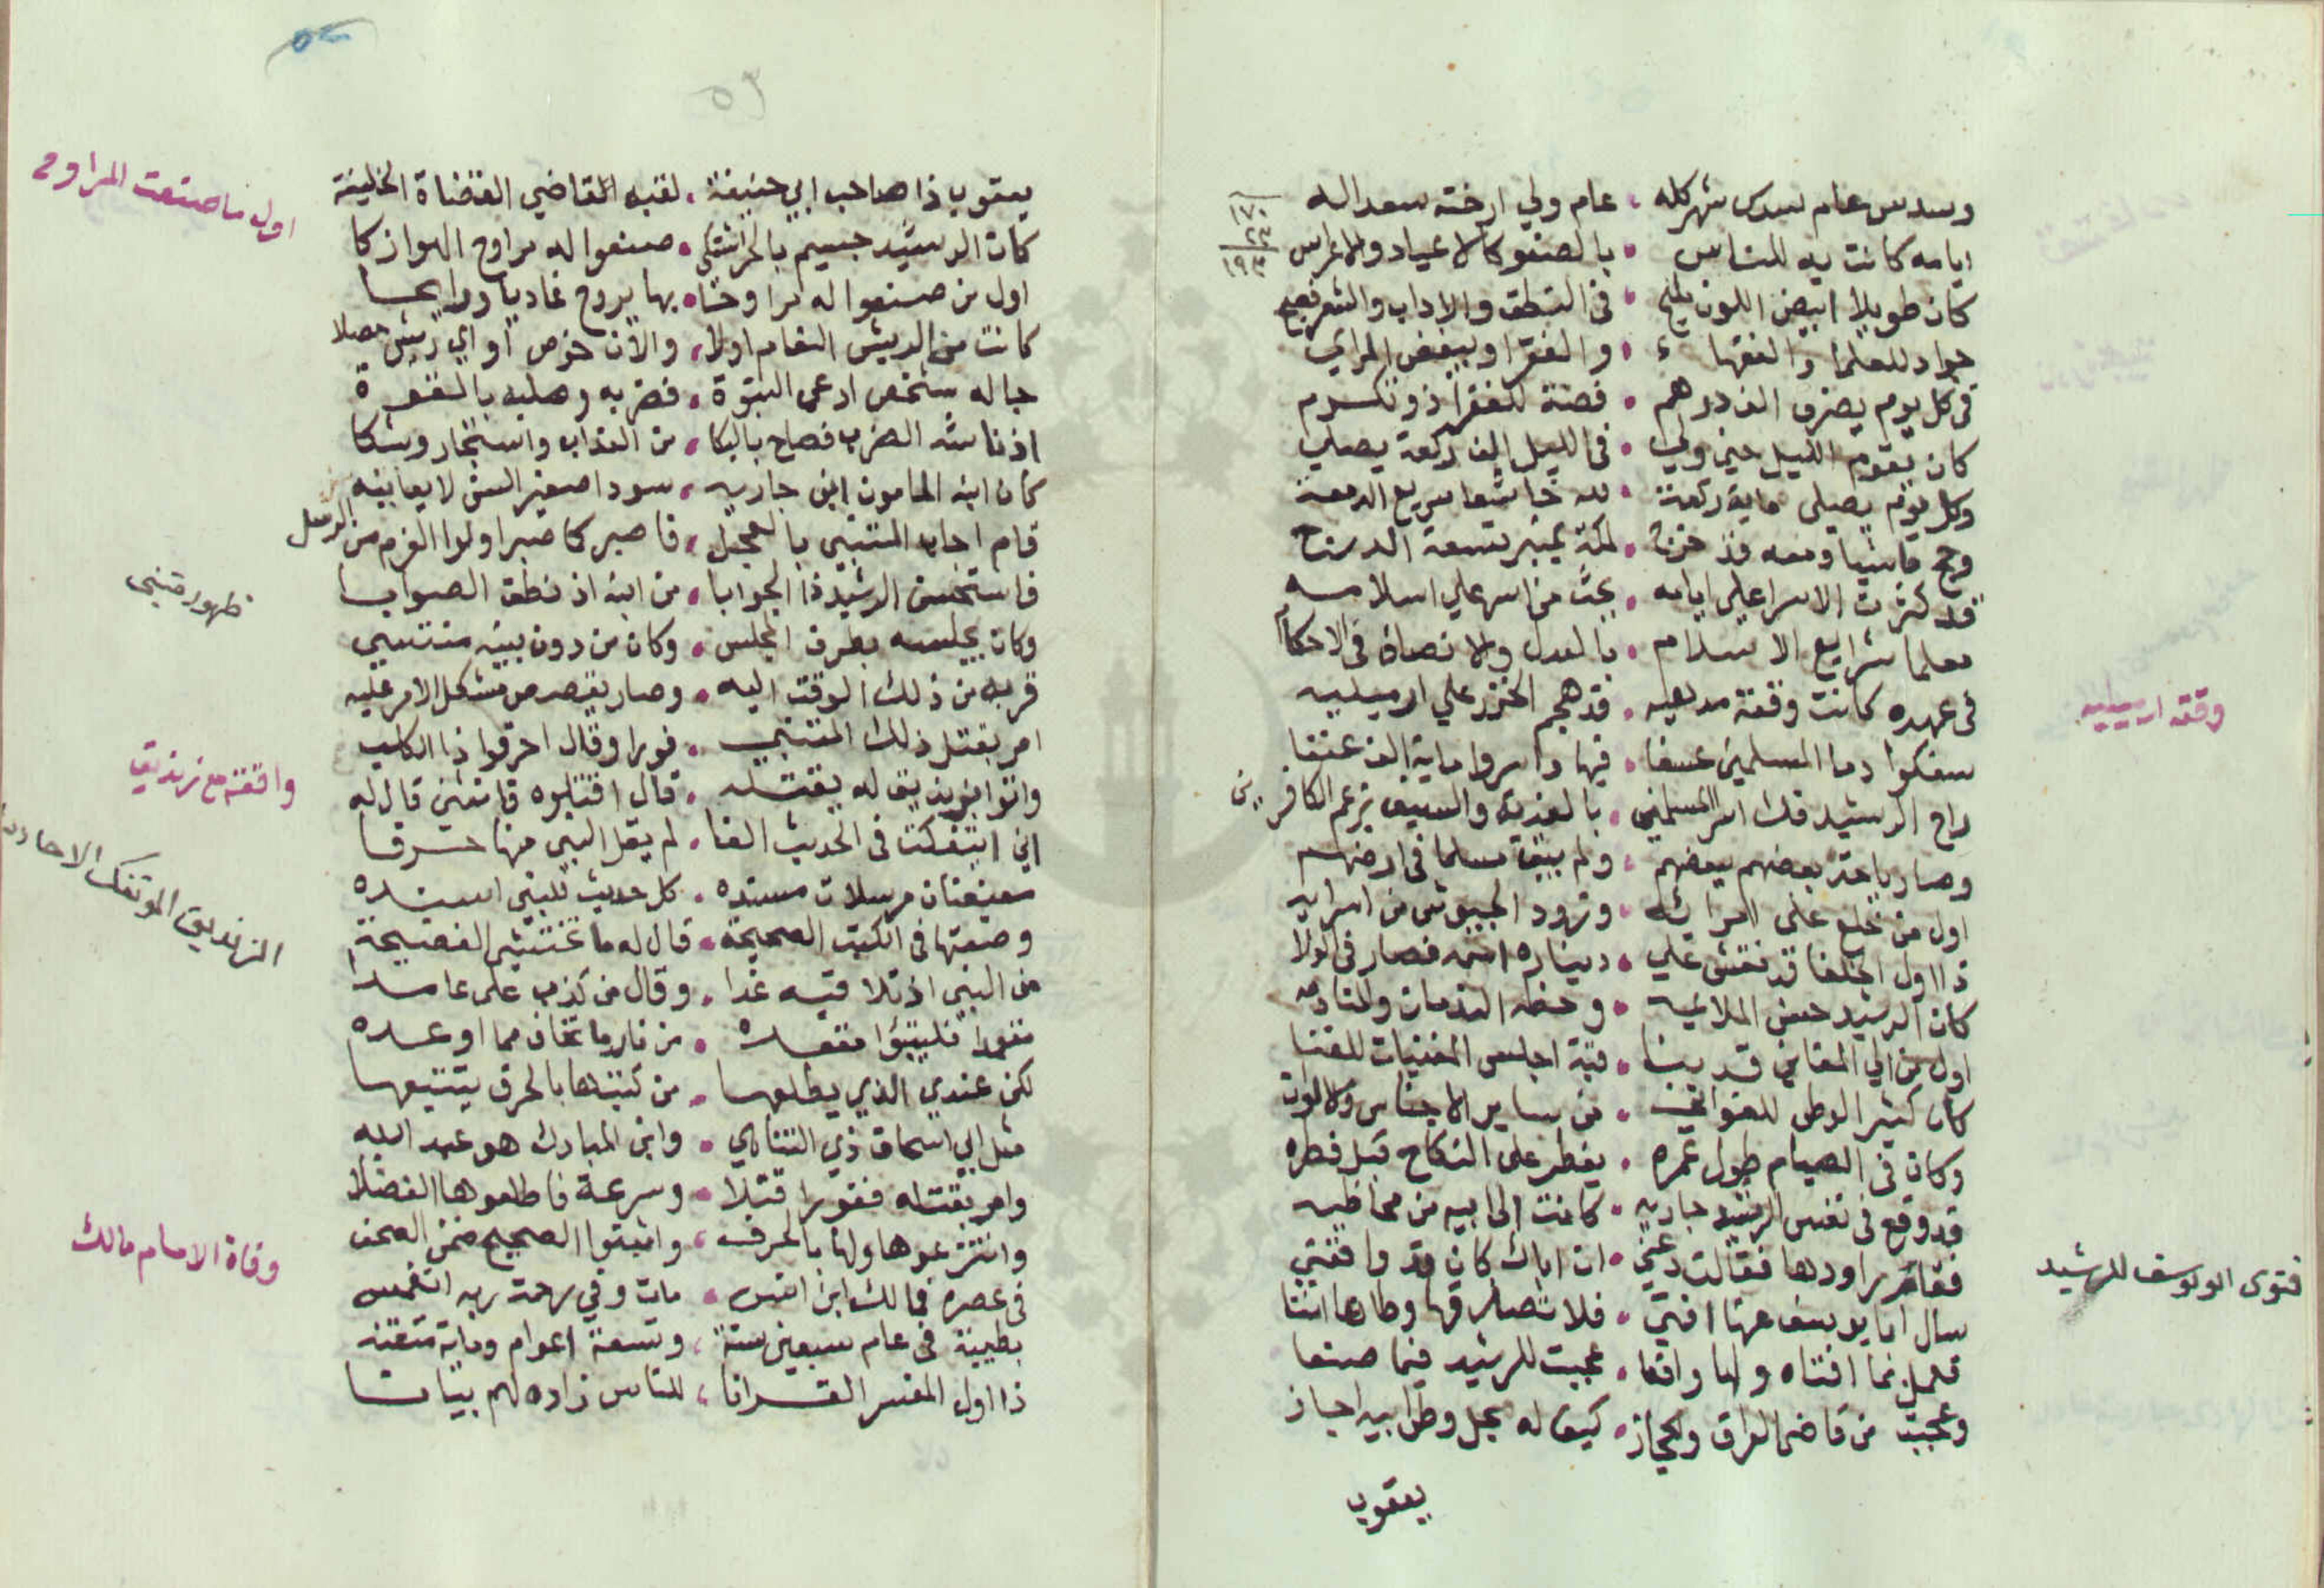 وسدس عام سدس شهر كله • عام ولي ارخته سعد الله
١٧٠
٢٣
١٩٣
ايامه كانت به للناس • بالصفو كالاعياد والاعراس
كان طويلا ابيض اللون مليح • في النطق والاداب والشعر فصيح
جواد للعلما والفقهاء • والفقرا ويبغض المرائي
في كل يوم يصرف الف درهم • فضة للفقرا ذو تكرم
كان يقوم الليل حين ولي • في الليل الف ركعة يصلي
وكل يوم يصلي ماية ركعة • لله خاشعا سريع الدمعة
وحج ماشيا ومعه قد خرج • لمكة
قد كثرت الاسرا على ايامه • بحث من اسر على اسلامه
معلما شرايع الاسلام • بالعدل والانصاف في الاحكام
وقعة ارميليه
في عهده كانت وقعة مدهيه • قد هجم الخزر علي ارميليه
سفكوا دما المسلمين عسفا • فيها واسروا ماية الف عنفا
راح الرشيد فك اسر المسلمين • بالفدية والسيف بزعم الكافرين
وصار ياخذ بعضهم ببعضهم • ولم يبق مسلما في ارضهم
اول من خلع على امرائه • وزود الجيوش من اسرايه
ذا اول الخلفا قد نقش علي • ديناره اسمه فصار في الولا
كان الرشيد حض الملاعبه • وحضه الندمان والمنادمه
اول من الي المغاني قد بنا • قبة اجلس المغنيات للغنا
كان كثير الوطي للغواني • من ساير الاجناس والالوان
وكان في الصيام طول عمره • يفطر على النكاح قبل فطره
قد وقع في نفس الرشيد جاريه • كانت الى ابيه من محاظيه
فقام راودها فقالت دعني • ان اباك كان قد واقعني
فتوى ابو يوسف للرشيد
سال ابا يوسف عنها افتي • فلا تصدقها وطارها انتا
فعمل بما افتاه ولها واقعا • عجبت للرشيد فيما صنعا
وعجبت من قاضي العراق والحجاز • كيف له يحل وطي ابيه اجاز
يعقوب
٥٢
٥٣
اول ما صنعت المراوح
يعقوب ذا صاحب ابي حنيفة • لقبه القاضي القضاة الخليفة
كان الرشيد جسيم بالحر اشتكي • صنعوا له مراوح الهوا زكا
اول من صنعوا له مراوحا • بها يروح غاديا ورايحا
كانت من الريش النعام اولا • والان خوص او اي ريش حصلا
جا له شخص ادعى النبوة • فضربه وصلبه بالقوة
اذ ناشه الضرب فصاح بالبكا • من العذاب واستجار وشكا
كان ابنه المامون ابن جاريه • سودا صغير السن لا يعاينه
قام اجاب المتنبي بالعجل • فاصبر كما صبر اولوا العزم من الرسل
ظهور متنبي
فاستحسن الرشيد ذا الجوابا • من ابنه اذ نطق الصوابا
وكان يجلسه بطرف المجلس • وكان من دون بنيه منتسي
قربه من ذلك الوقت اليه • وصار يقصد من مشكل الامر عليه
امر بقتل ذلك المتنبي • فورا وقال احرقوا ذا الكلب
واقعته مع زنديق
واتوا بزنديق له يقتله • قال اقتلوه قام من قال له
الزنديق المؤتفك الاحاديث
اني ائتفكت في الحديث الفا • لم يقل النبي منها حرفا
معنعنات مرسلات مسنده • كل حديث للنبي اسنده
وضعتها في الكتب الصحيحة • قال له ما تختشي الفضيحة
من النبي اذ تلاقيه غدا • وقال من كذب علي عامدا
متعمدا فليتبؤا مقعده • من نار ما تخاف مما اوعده
لكن عندي الذي يطلعها • من كتبها بالحرف يتتبعها
مثل ابي اسحاق ذي التناهي • وابن المبارك هو عبد الله
وامر بقتله ففورا قتلا • وسرعة فاطلعوها الفضلا
وانتزعوها ولها بالحرف • واثبتوا الصحيح ضمن الصحف
وفاة الامام مالك
في عصره مالك ابن انس • مات وفي رحمة ربه انغمس
بطيبة في عام سبعين سنة • وتسعة اعوام وماية متقنه
ذا اول المفسر القرانا • للناس زاده لهم بيانا